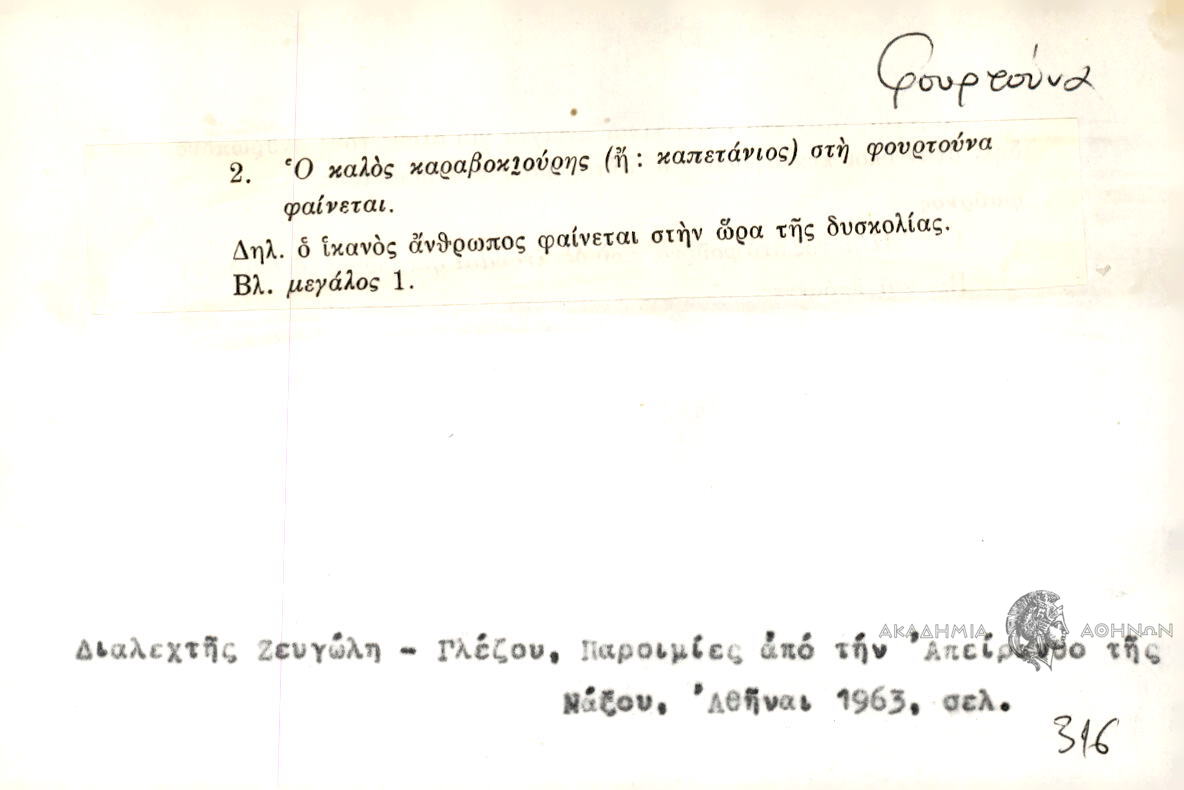 φουρτούνα
2. Ὁ καλὸς καραβοκι̯ούρης (ἤ : καπετάνιος) στὴ φουρτούνα
φαίνεται.
Δηλ. ὁ ἱκανὸς ἄνθρωπος φαίνεται στὴν ὥρα τῆς δυσκολίας.
Βλ. μεγάλος 1.
ΑΚΑΔΗΜΙΑ ΑΘΗΝΩΝ
Διαλεχτῆς Ζευγώλη - Γλέζου, Παροιμίες ἀπό τήν Ἀπείρανθο τῆς
Νάξου, Ἀθῆναι 1963, σελ.
316